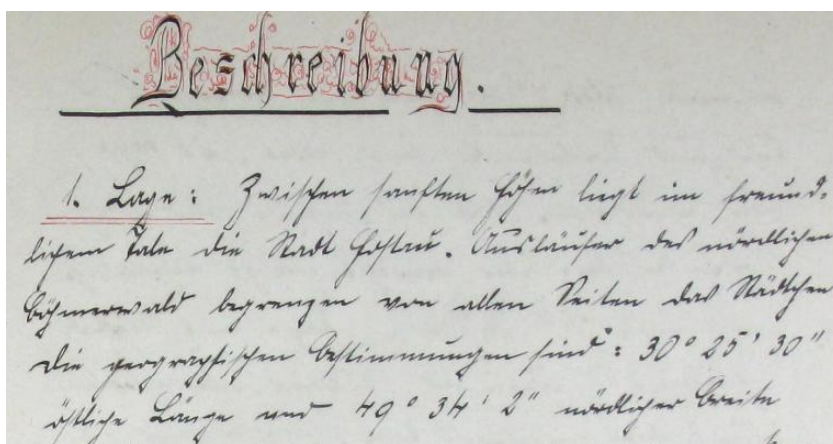 Beschreibung.
1. Lage: Zwischen sanften Höhen liegt im freund-
lichem Tale die Stadt Hostau. Ausläufer des nördlichen
Böhmerwald begrenzen von allen Seiten das Städtchen
Die geographischen Bestimmungen sind: 30° 25' 30"
östliche Länge und 49° 34' 2" nördlicher Breite